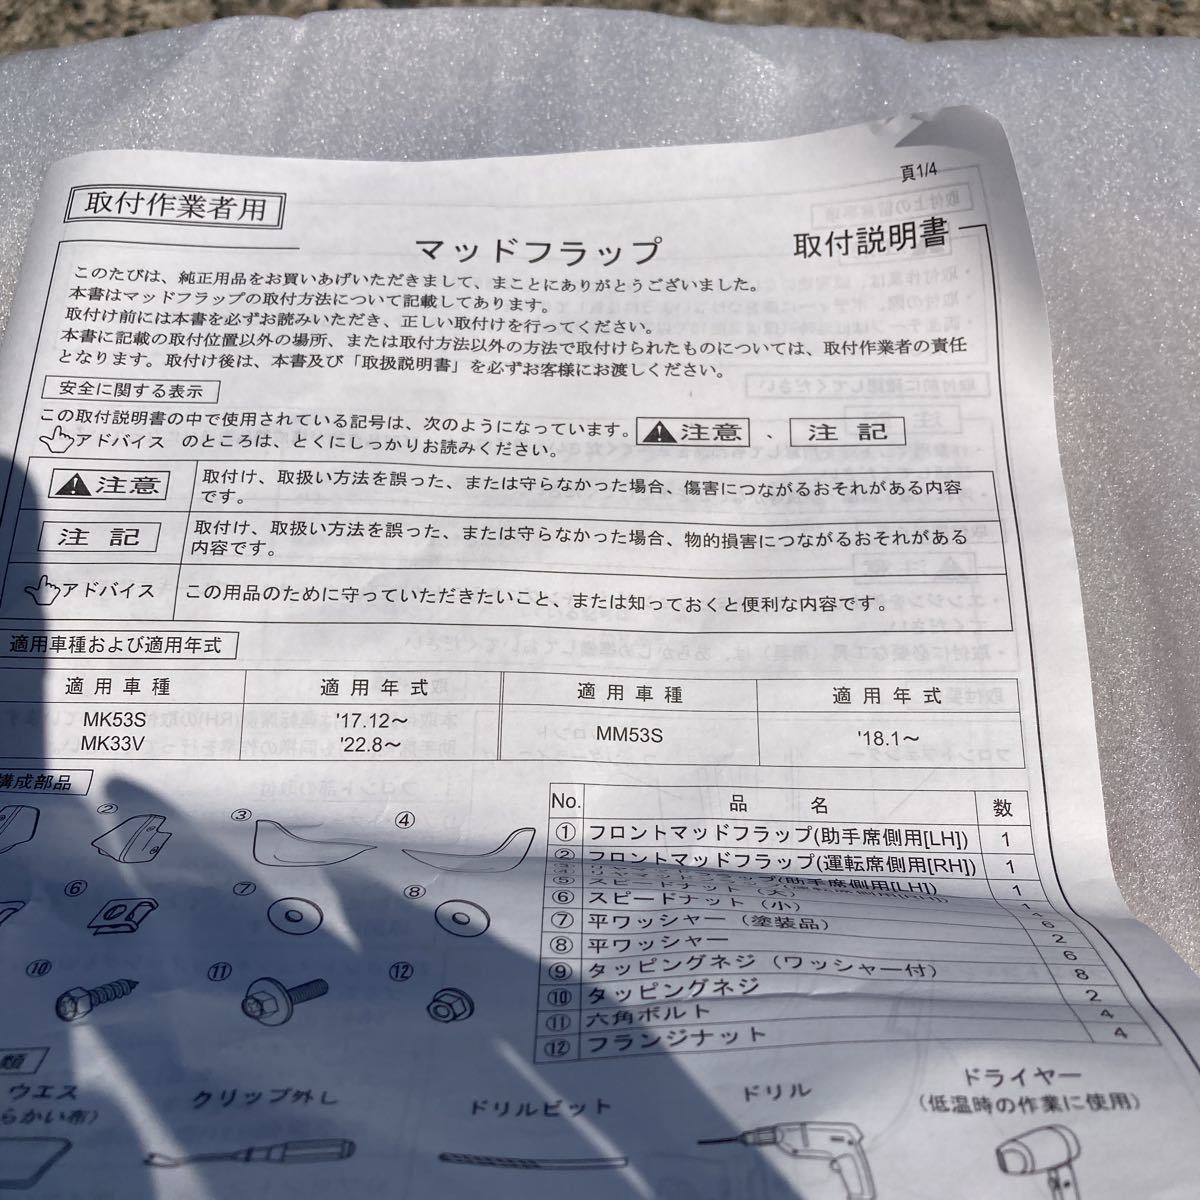 頁1/4
取付作業者用
マッドフラップ
取付説明書
このたびは、純正用品をお買いあげいただきまして、まことにありがとうございました。
本書はマッドフラップの取付方法について記載してあります。
取付け前には本書を必ずお読みいただき、正しい取付けを行ってください。
本書に記載の取付位置以外の場所、または取付方法以外の方法で取付けられたものについては、取付作業者の責任
となります。取付け後は、本書及び「取扱説明書」を必ずお客様にお渡しください。
安全に関する表示
この取付説明書の中で使用されている記号は、次のようになっています。 注意 、 注記
アドバイス のところは、とくにしっかりお読みください。
注意 取付け、取扱い方法を誤った、または守らなかった場合、傷害につながるおそれがある内容
です。
注記 取付け、取扱い方法を誤った、または守らなかった場合、物的損害につながるおそれがある
内容です。
アドバイス この用品のために守っていただきたいこと、または知っておくと便利な内容です。
適用車種および適用年式
適用車種 適用年式 適用車種 適用年式
MK53S '17.12〜
MK33V '22.8〜
MM53S '18.1〜
構成部品
② ③ ④
⑥ ⑦ ⑧
⑩ ⑪ ⑫
No. 品名 数
① フロントマッドフラップ(助手席側用[LH]) 1
② フロントマッドフラップ(運転席側用[RH]) 1
③
④ (助手席側用[LH]) 1
⑤ スピードナット(大)
⑥ スピードナット(小) 6
⑦ 平ワッシャー(塗装品) 2
⑧ 平ワッシャー 6
⑨ タッピングネジ(ワッシャー付) 8
⑩ タッピングネジ 2
⑪ 六角ボルト 4
⑫ フランジナット 4
類
ウエス
らかい布)
クリップ外し
ドリルビット
ドリル
ドライヤー
(低温時の作業に使用)